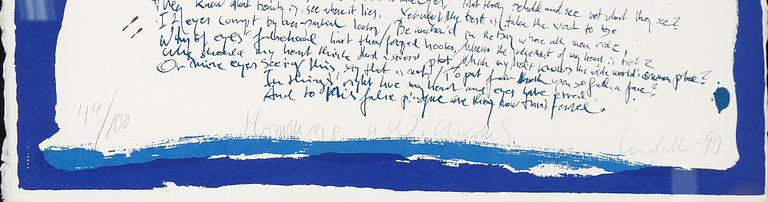 that they behold and see not what they see?
They know what beauty is, see where it lies, Yet what the best is take the worst to be.
If eyes corrupt by over-partial looks, Be anchor'd in the bay where all men ride,
Why of eyes' falsehood hast thou forged hooks, Whereto the judgement of my heart is tied?
Why should my heart think that a several plot, Which my heart knows the wide world's common place?
Or mine eyes seeing this, say this is not, To put fair truth upon so foul a face?
In things right true my heart and eyes have erred
And to this false plague are they now transferred.
49/100 Hommage a William S. -90